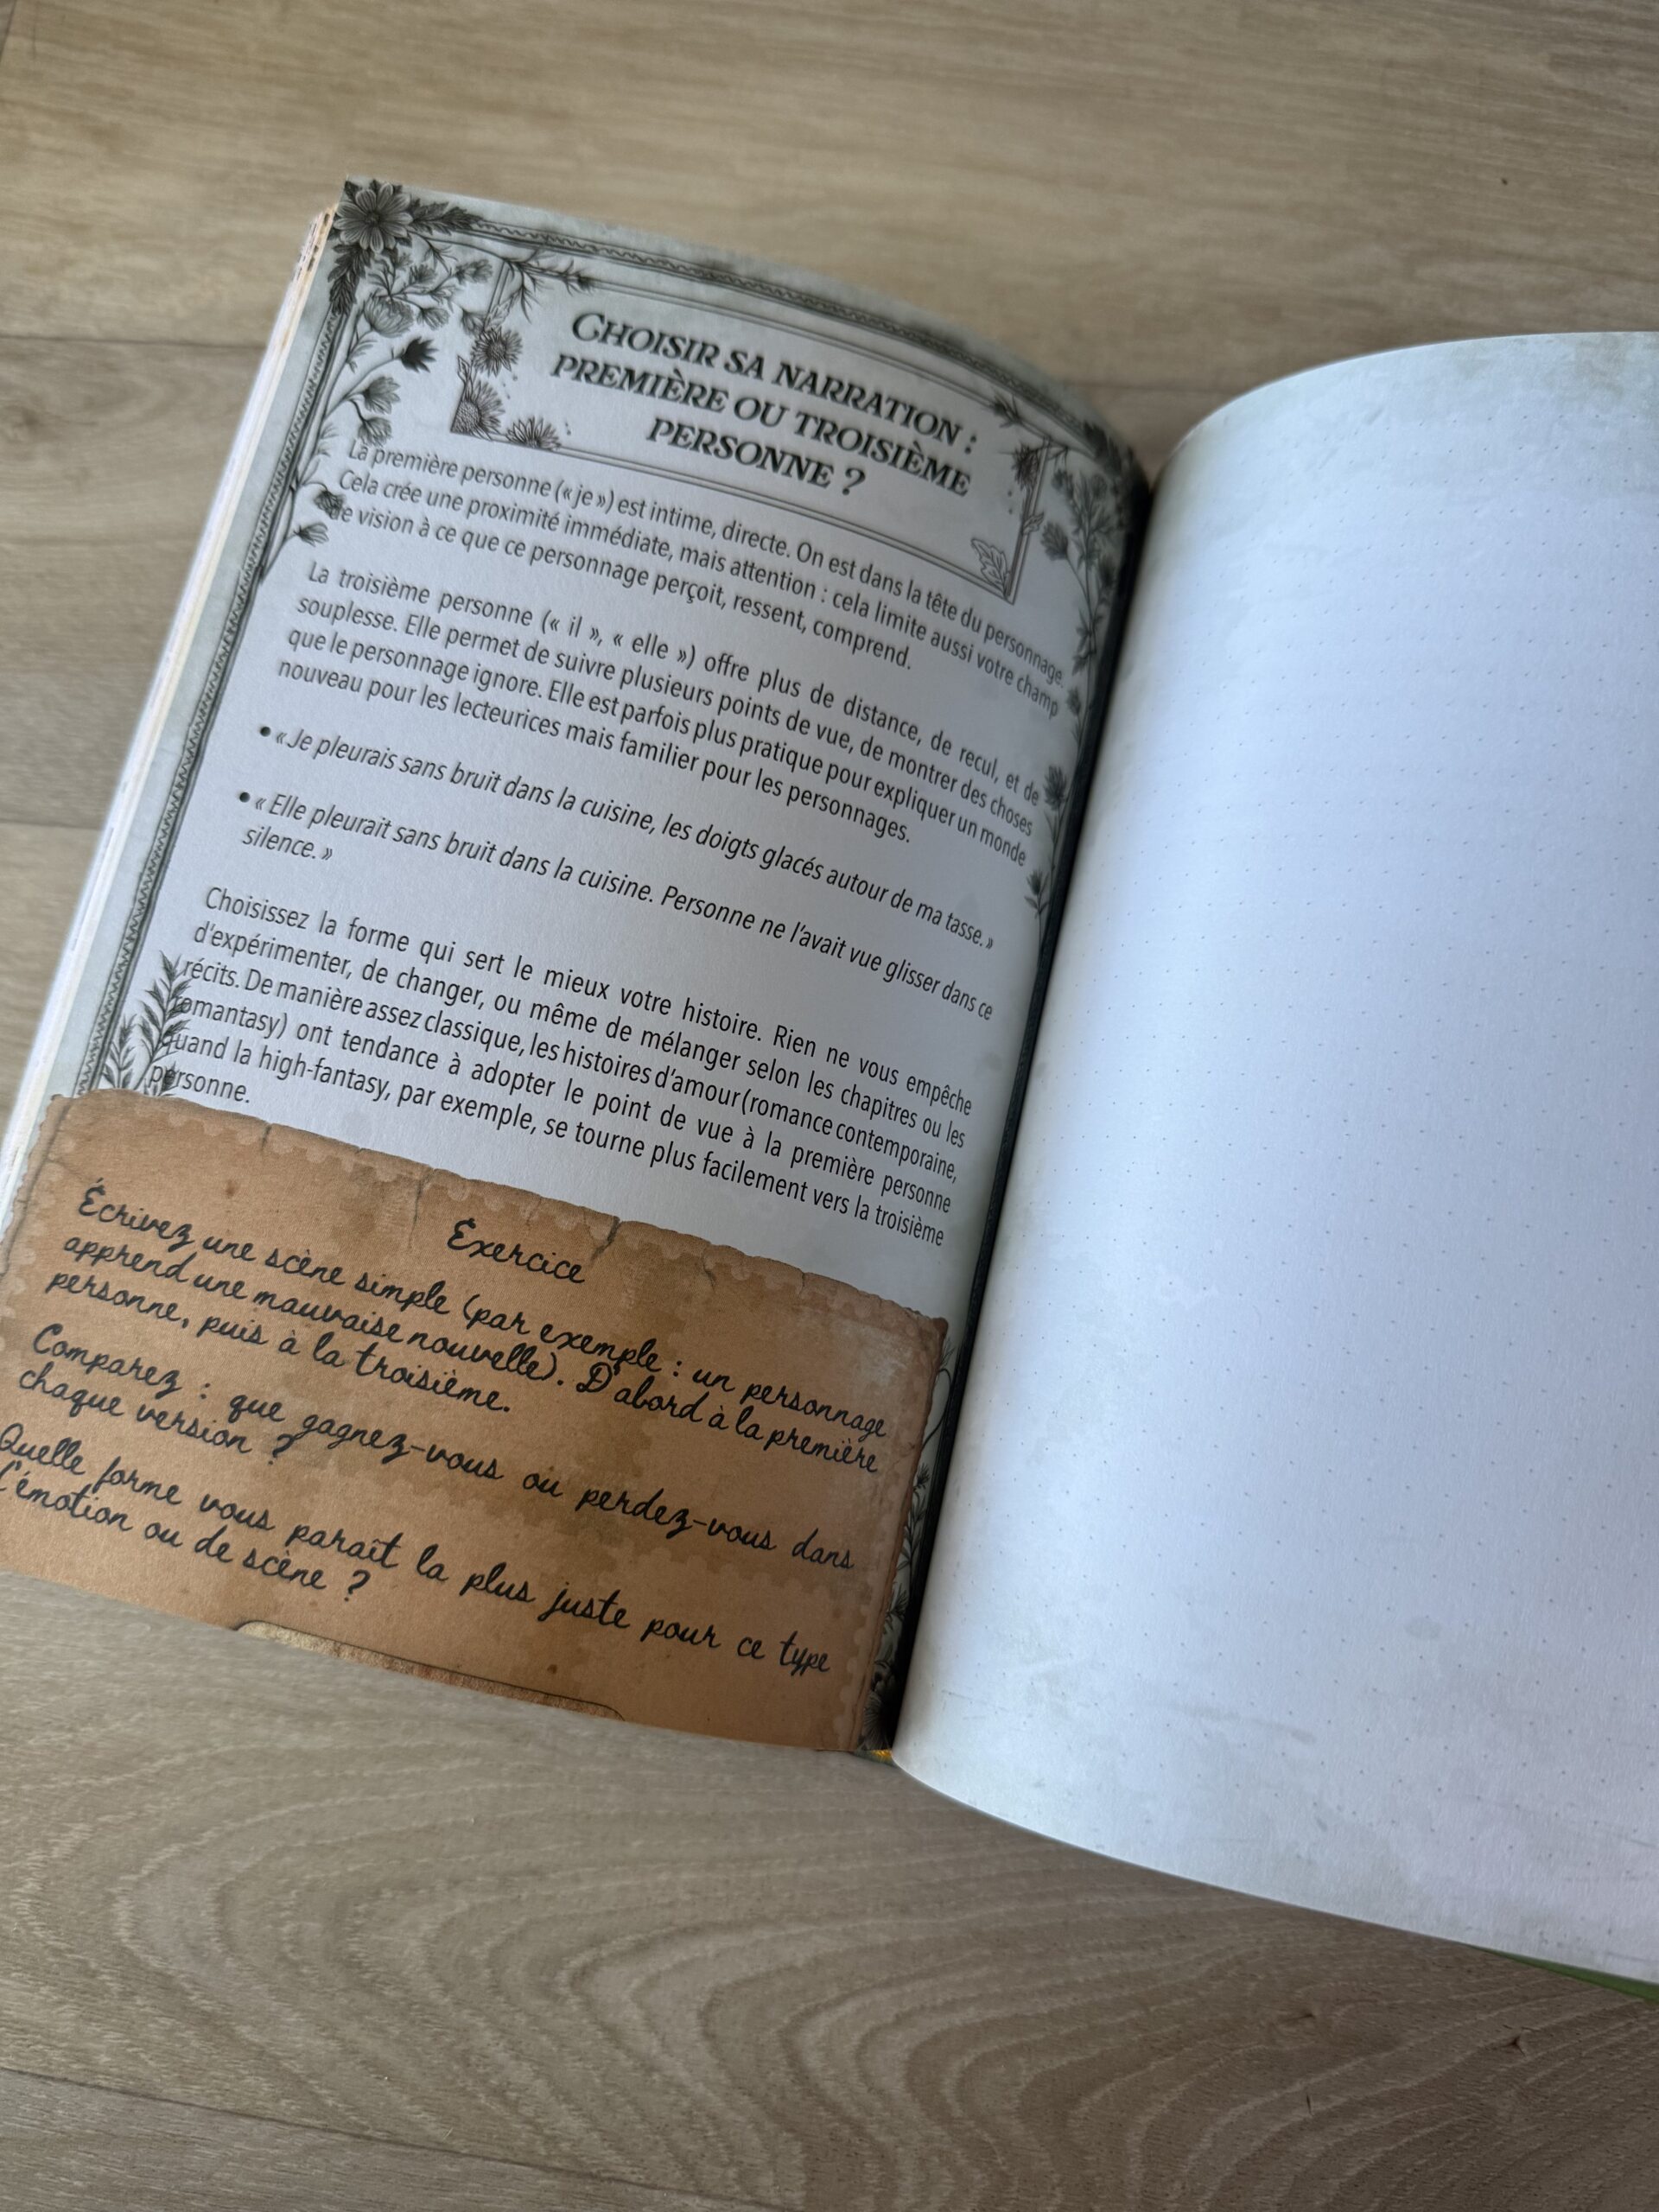 CHOISIR SA NARRATION :
PREMIÈRE OU TROISIÈME
PERSONNE ?
La première personne (« je ») est intime, directe. On est dans la tête du personnage.
Cela crée une proximité immédiate, mais attention : cela limite aussi votre champ
de vision à ce que ce personnage perçoit, ressent, comprend.
La troisième personne (« il », « elle ») offre plus de distance, de recul, et de
souplesse. Elle permet de suivre plusieurs points de vue, de montrer des choses
que le personnage ignore. Elle est parfois plus pratique pour expliquer un monde
nouveau pour les lecteurices mais familier pour les personnages.
• « Je pleurais sans bruit dans la cuisine, les doigts glacés autour de ma tasse. »
• « Elle pleurait sans bruit dans la cuisine. Personne ne l'avait vue glisser dans ce
silence. »
Choisissez la forme qui sert le mieux votre histoire. Rien ne vous empêche
d'expérimenter, de changer, ou même de mélanger selon les chapitres ou les
récits. De manière assez classique, les histoires d'amour (romance contemporaine,
romantasy) ont tendance à adopter le point de vue à la première personne
quand la high-fantasy, par exemple, se tourne plus facilement vers la troisième
personne.
Exercice
Écrivez une scène simple (par exemple : un personnage
apprend une mauvaise nouvelle). D'abord à la première
personne, puis à la troisième.
Comparez : que gagnez-vous ou perdez-vous dans
chaque version ?
Quelle forme vous paraît la plus juste pour ce type
d'émotion ou de scène ?